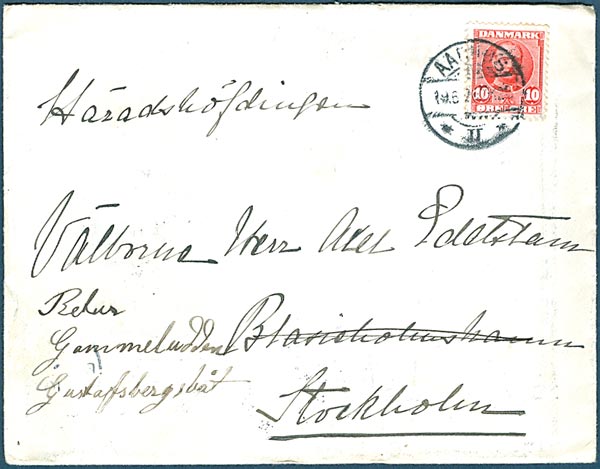 DANMARK
10 10
ØRE
AARHUS
II
Häradshöfdingen
Välborne Herr Axel Edelstam
Retur
Gammeludden Blasieholmshamn
Gustafsbergsbåt
Stockholm